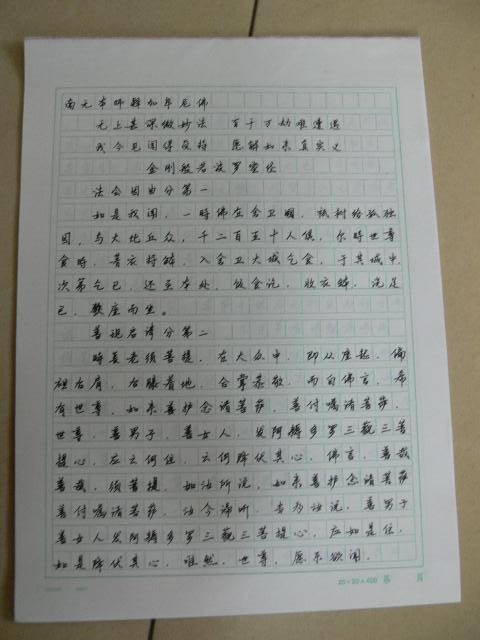 南无本师释加牟尼佛
无上甚深微妙法 百千万劫难遭遇
我今见闻得受持 愿解如来真实义
金刚般若波罗蜜经
法会因由分第一
如是我闻，一时佛在舍卫国，祇树给孤独
园，与大比丘众，千二百五十人俱，尔时世尊
食时，著衣持钵，入舍卫大城乞食，于其城中，
次第乞已，还至本处，饭食讫，收衣钵，洗足
已，敷座而坐。
善现启请分第二
时长老须菩提，在大众中，即从座起，偏
袒右肩，右膝着地，合掌恭敬，而白佛言，希
有世尊，如来善护念诸菩萨，善付嘱诸菩萨，
世尊，善男子，善女人，发阿耨多罗三藐三菩
提心，应云何住，云何降伏其心，佛言，善哉
善哉，须菩提，如汝所说，如来善护念诸菩萨
善付嘱诸菩萨，汝今谛听，当为汝说，善男子
善女人发阿耨多罗三藐三菩提心，应如是住，
如是降伏其心，唯然，世尊，愿乐欲闻。
20×20=400 第 页